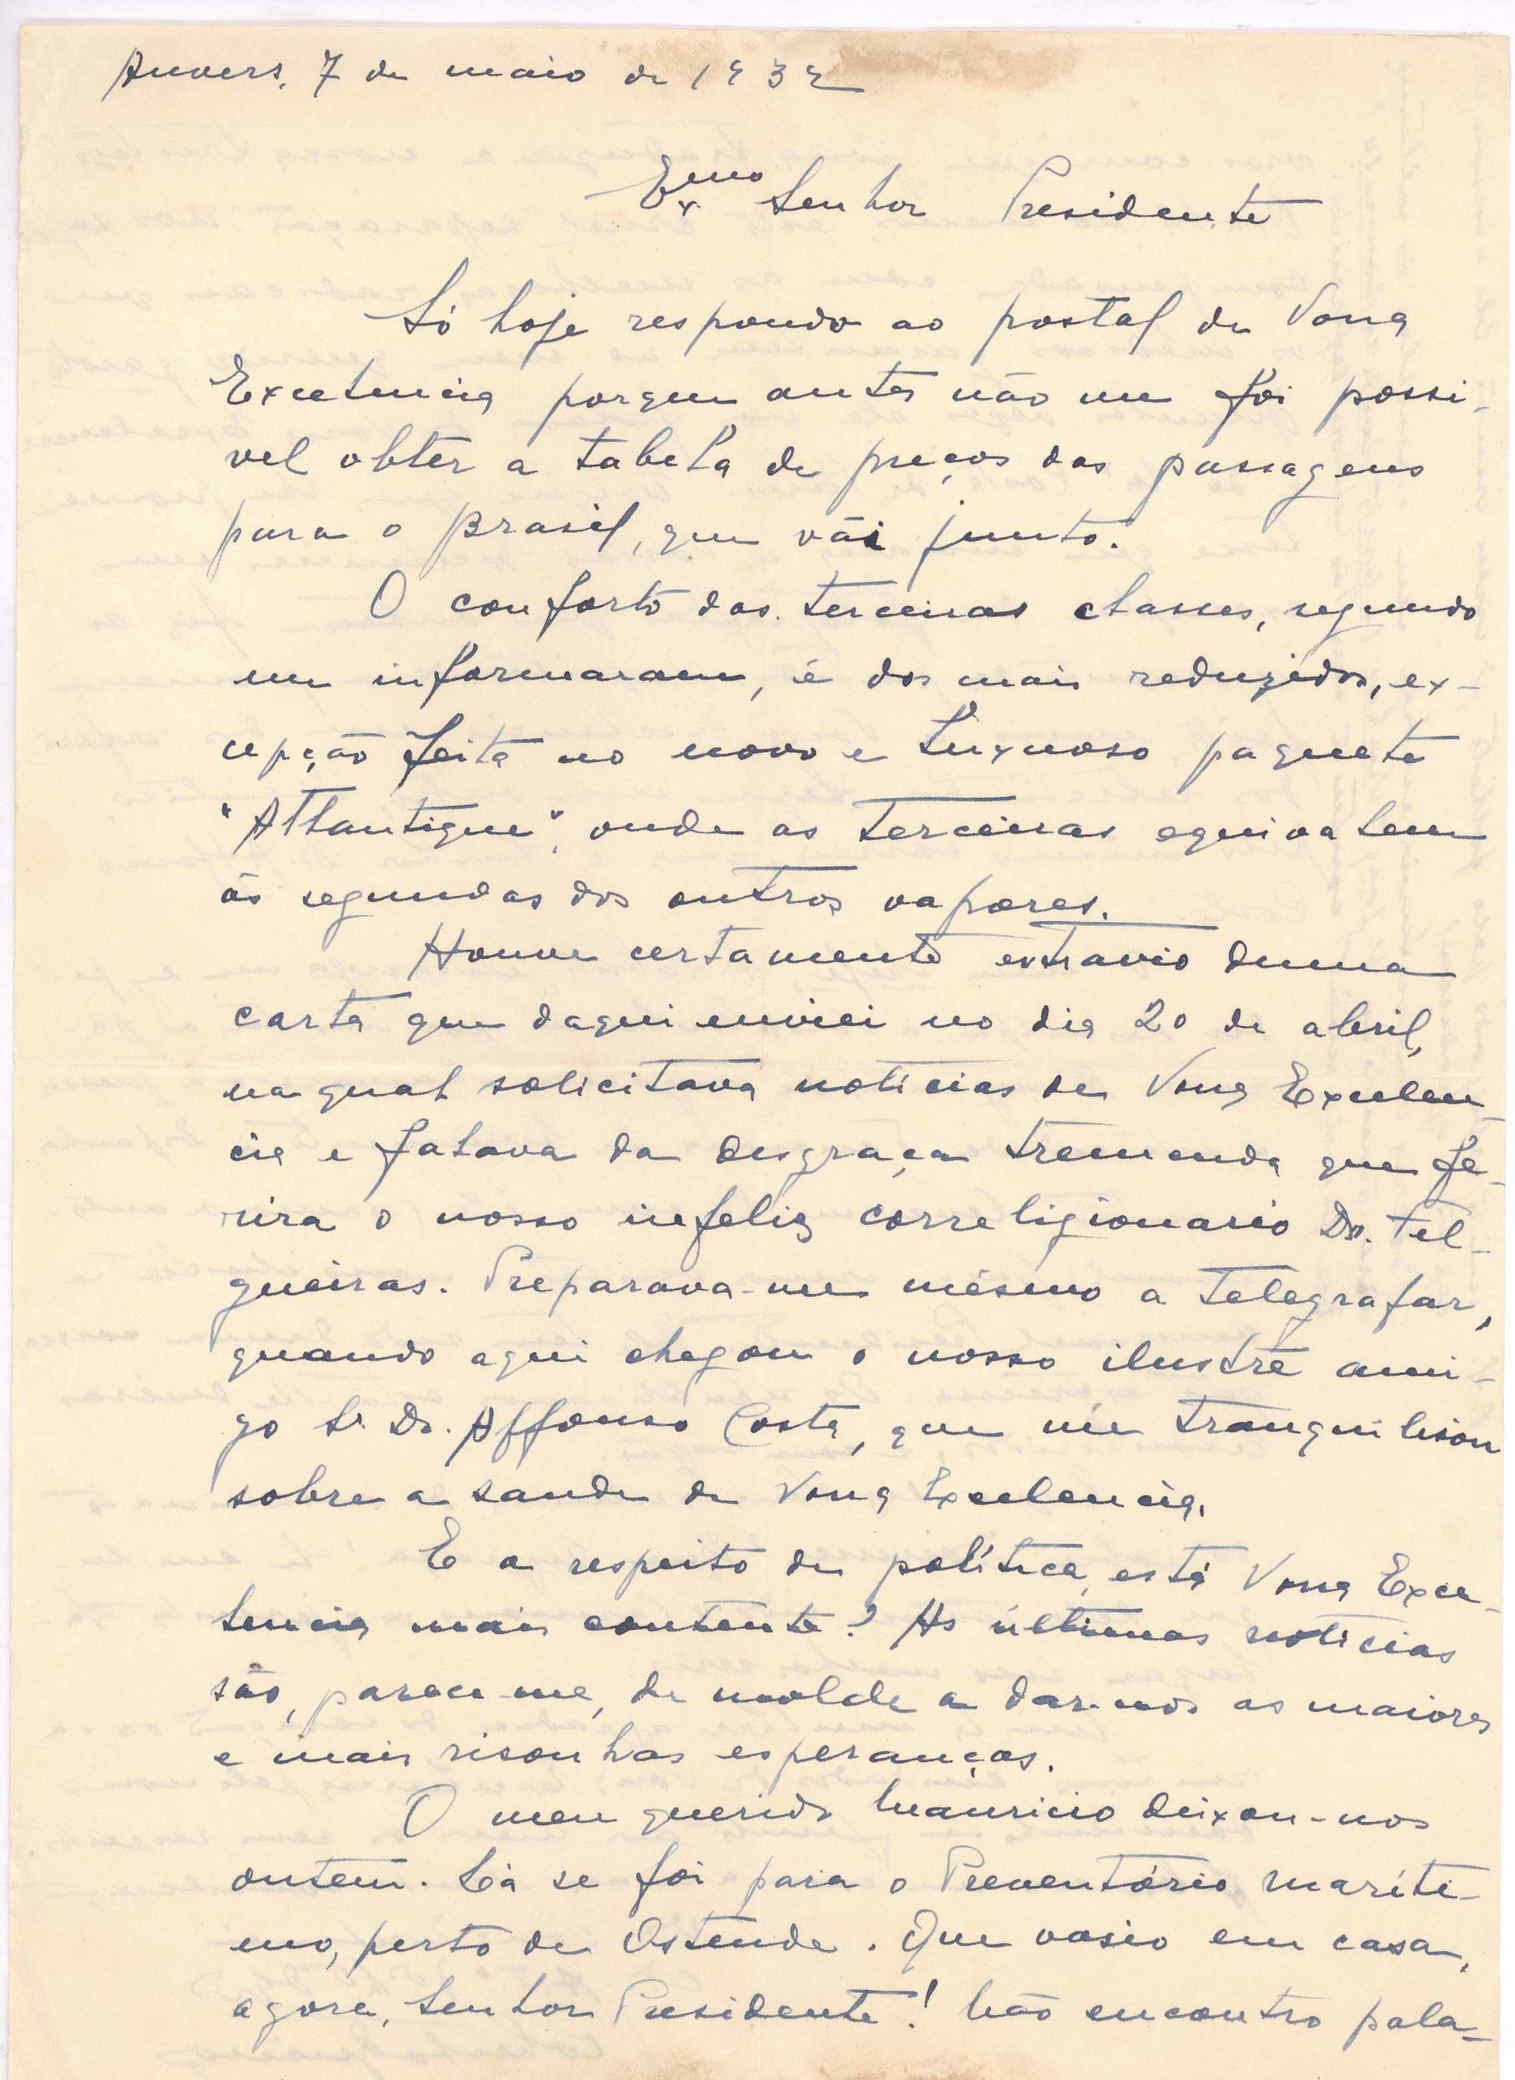 Anvers, 7 de maio de 1932
Exmo Senhor Presidente
Só hoje respondo ao postal de Vossa
Excelencia porque antes não me foi possi-
vel obter a tabela de preços das passagens
para o Brasil, que vái junto.
O conforto das terceiras classes, segundo
me informaram, é dos mais reduzidos, ex-
cepção feita no novo e luxuoso paquete
"Atlantique", onde as terceiras equivalem
ás segundas dos outros vapores.
Houve certamente extravio duma
carta que daqui enviei no dia 20 de abril,
na qual solicitava notícias de Vossa Excelen-
cia e falava da desgraça tremenda que fe-
rira o nosso infeliz correligionario Dr. Fel-
gueiras. Preparava-me mésmo a telegrafar,
quando aqui chegou o nosso ilustre ami-
go Sr. Dr. Affonso Costa, que me tranquilisou
sobre a saude de Vossa Excelencia.
E a respeito de política, está Vossa Exce-
lencia mais contente? As últimas noticias
são, parece-me, de molde a dar-nos as maiores
e mais risonhas esperanças.
O meu querido Mauricio deixou-nos
ontem. Lá se foi para o Preventório maríti-
mo, perto de Ostende. Que vasio em casa,
agora, Senhor Presidente! Não encontro pala-